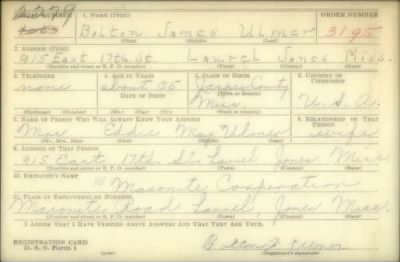 SERIAL NUMBER 1. NAME (Print) ORDER NUMBER
Bolton James Ulmer 3195
(First) (Middle) (Last)
2. ADDRESS (Print)
915 East 17th. St. Laurel Jones Miss.
(Number and street or R. F. D. number) (Town) (County) (State)
3. TELEPHONE 4. AGE IN YEARS 5. PLACE OF BIRTH 6. COUNTRY OF CITIZENSHIP
none about 35 Jasper County
DATE OF BIRTH Miss. U. S. A.
(Exchange) (Number) (Mo.) (Day) (Yr.) (State or country)
7. NAME OF PERSON WHO WILL ALWAYS KNOW YOUR ADDRESS 8. RELATIONSHIP OF THAT PERSON
Mrs Eddie May Ulmer wife
(Mr., Mrs., Miss) (First) (Middle) (Last)
9. ADDRESS OF THAT PERSON
915 East 17th. St. Laurel Jones Miss
(Number and street or R. F. D. number) (Town) (County) (State)
10. EMPLOYER'S NAME
Masonite Corporation
11. PLACE OF EMPLOYMENT OR BUSINESS
Masonite Road Laurel, Jones Miss.
(Number and street or R. F. D. number) (Town) (County) (State)
I AFFIRM THAT I HAVE VERIFIED ABOVE ANSWERS AND THAT THEY ARE TRUE.
REGISTRATION CARD
D. S. S. FORM 1
(Registrant's signature)